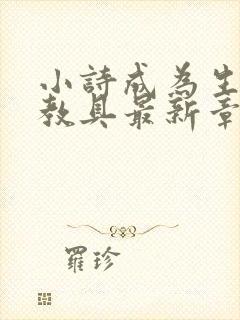 小詩成為生
教具最新章
羅珍